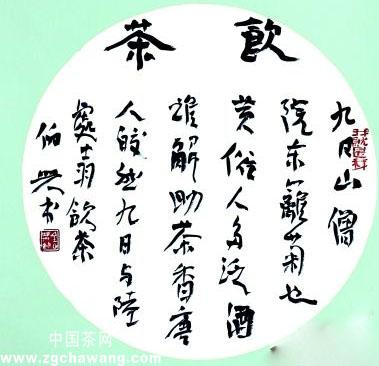 飲茶
九日山僧
院东籬菊也
黄俗人多泛酒
誰解助茶香唐
人皎然九日与陸
處士羽飲茶
伯興书
中国茶网
www.zgchawang.com